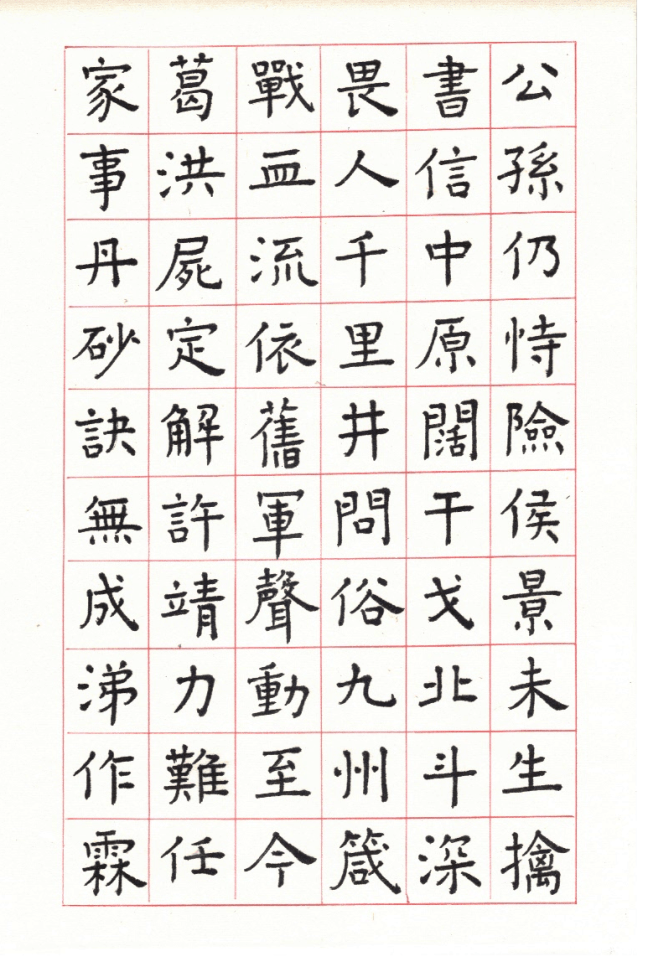 公孫仍恃險侯景未生擒
書信中原闊干戈北斗深
畏人千里井問俗九州箴
戰血流依舊軍聲動至今
葛洪屍定解許靖力難任
家事丹砂訣無成涕作霖